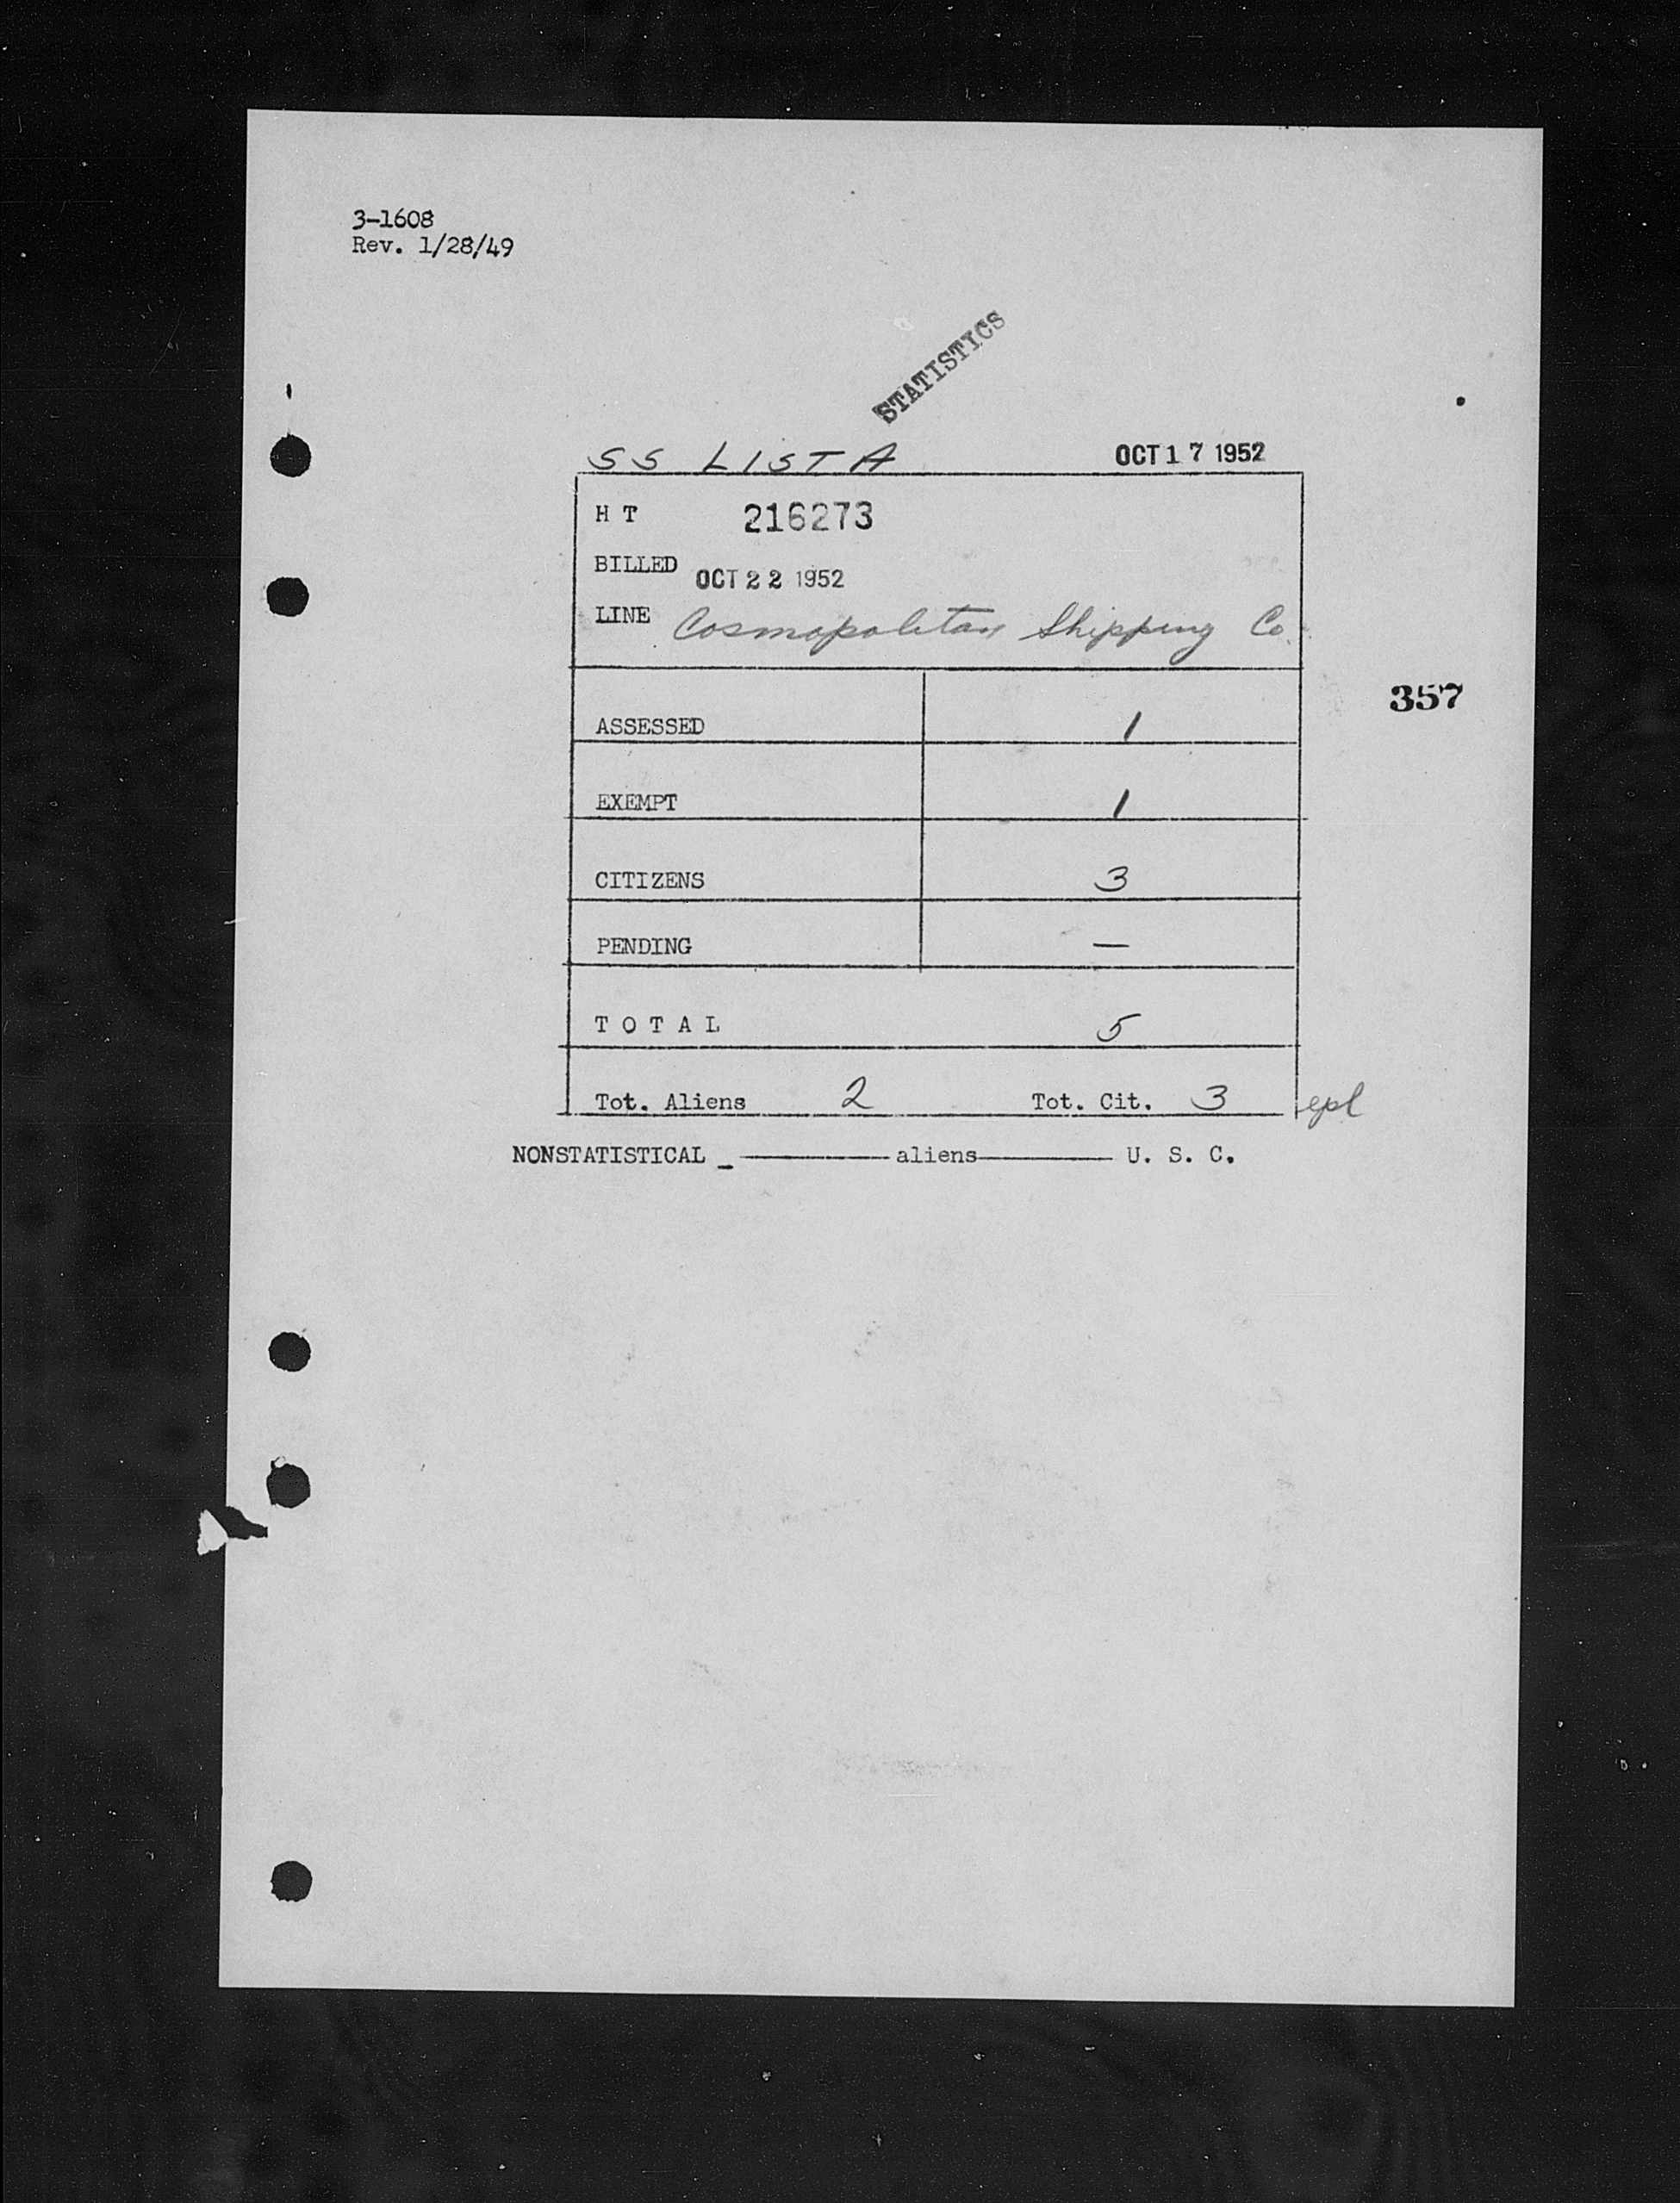 3-1608
Rev. 1/28/49
STATISTICS
SS LISTA OCT 17 1952
H T 216273
BILLED OCT 22 1952
LINE Cosmopolitan Shipping Co.
357
ASSESSED 1
EXEMPT 1
CITIZENS 3
PENDING —
T O T A L 5
Tot. Aliens 2 Tot. Cit. 3 epl
NONSTATISTICAL _ ———— aliens ———— U. S. C.